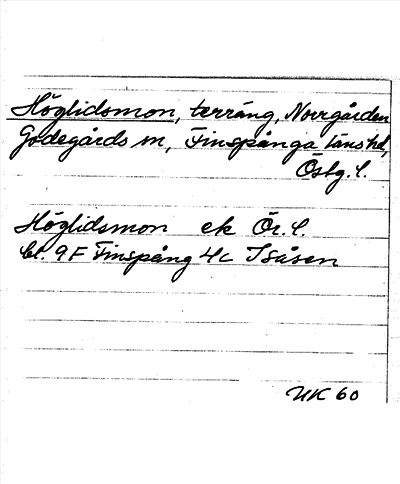 Höglidsmon, terräng, Norrgården
Godegårds sn, Finspånga läns hd,
Östg. l.
Höglidsmon ek Ör. l.
bl. 9F Finspång 4c Isåsen
NK 60